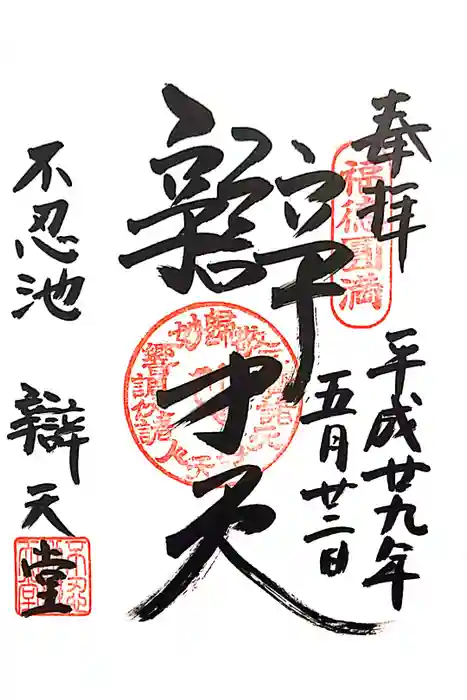 奉拝
福徳圓満
平成廿九年
五月廿二日
辯才天
不忍池
辯天堂